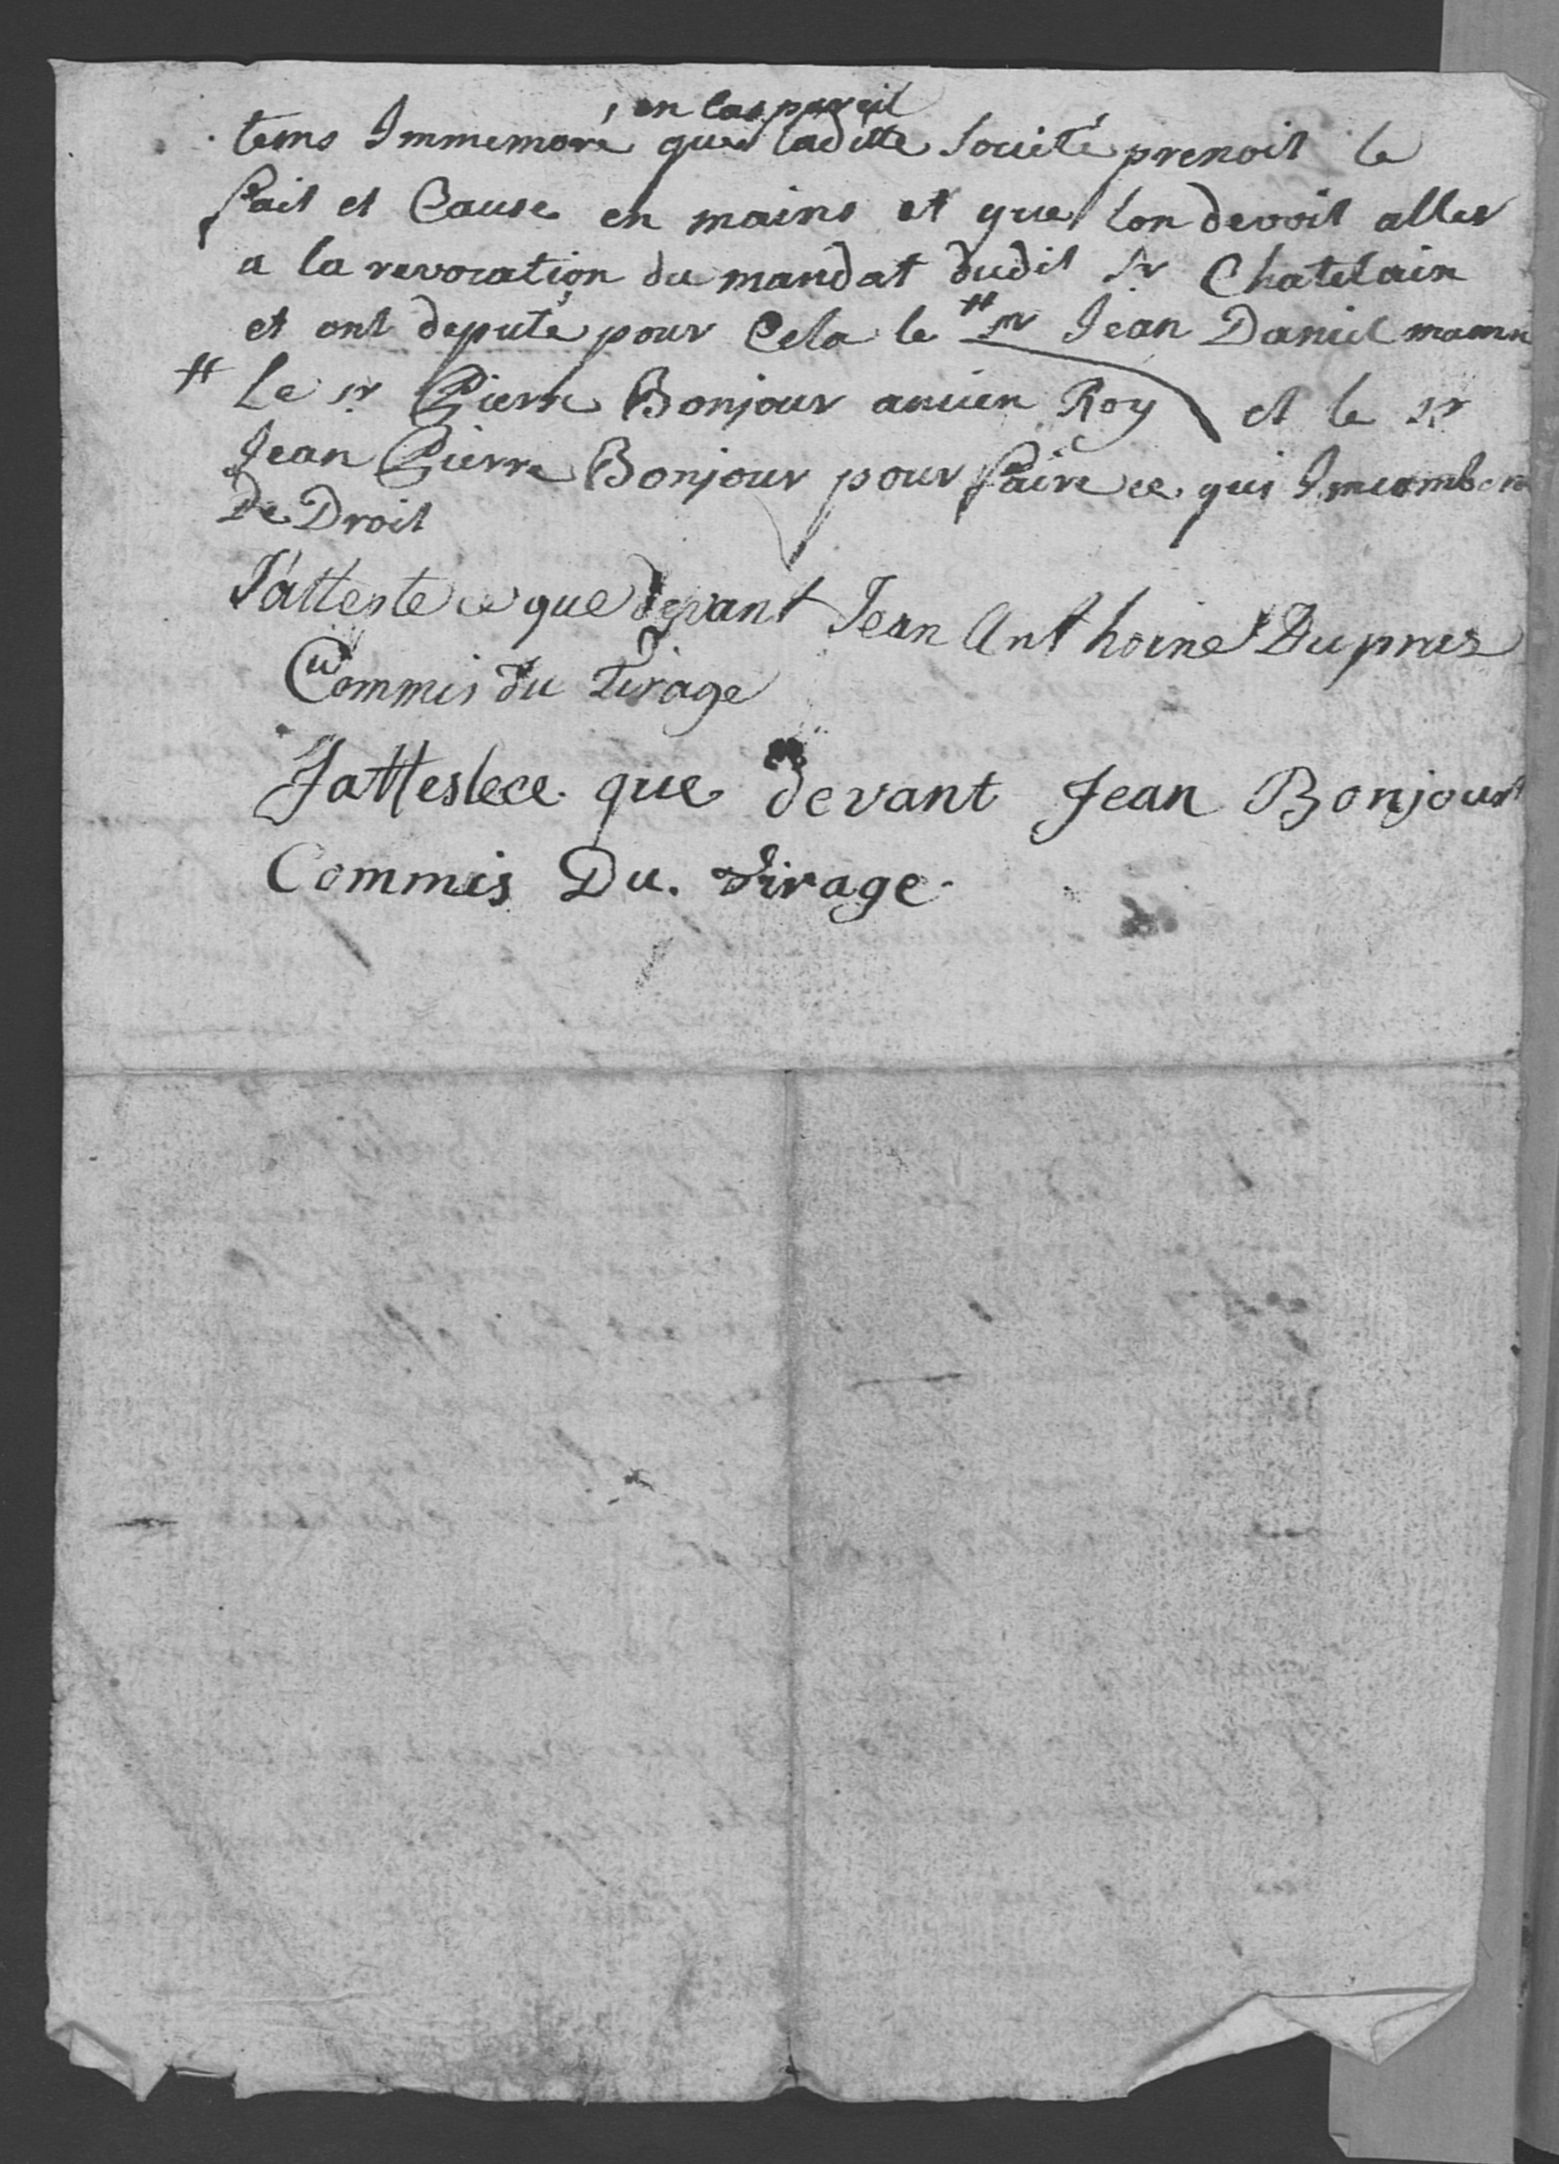 en cas pareil
tems Immemoré que laditte Societé prenoit le
fait et Cause en mains et que lon devoit aller
a la revocation du mandat dudit Sr Chatelain
et ont deputé pour Cela le # Sr Jean Daniel mamin
# Le Sr Pierre Bonjour ancien Roy et le Sr
Jean Pierre Bonjour pour faire ce qui Imcombera
De Droit
J'atteste ce que devant Jean Anthoine Dupraz
Commis du Tirage
Jatteste ce que devant Jean Bonjour
Commis Du. Tirage.